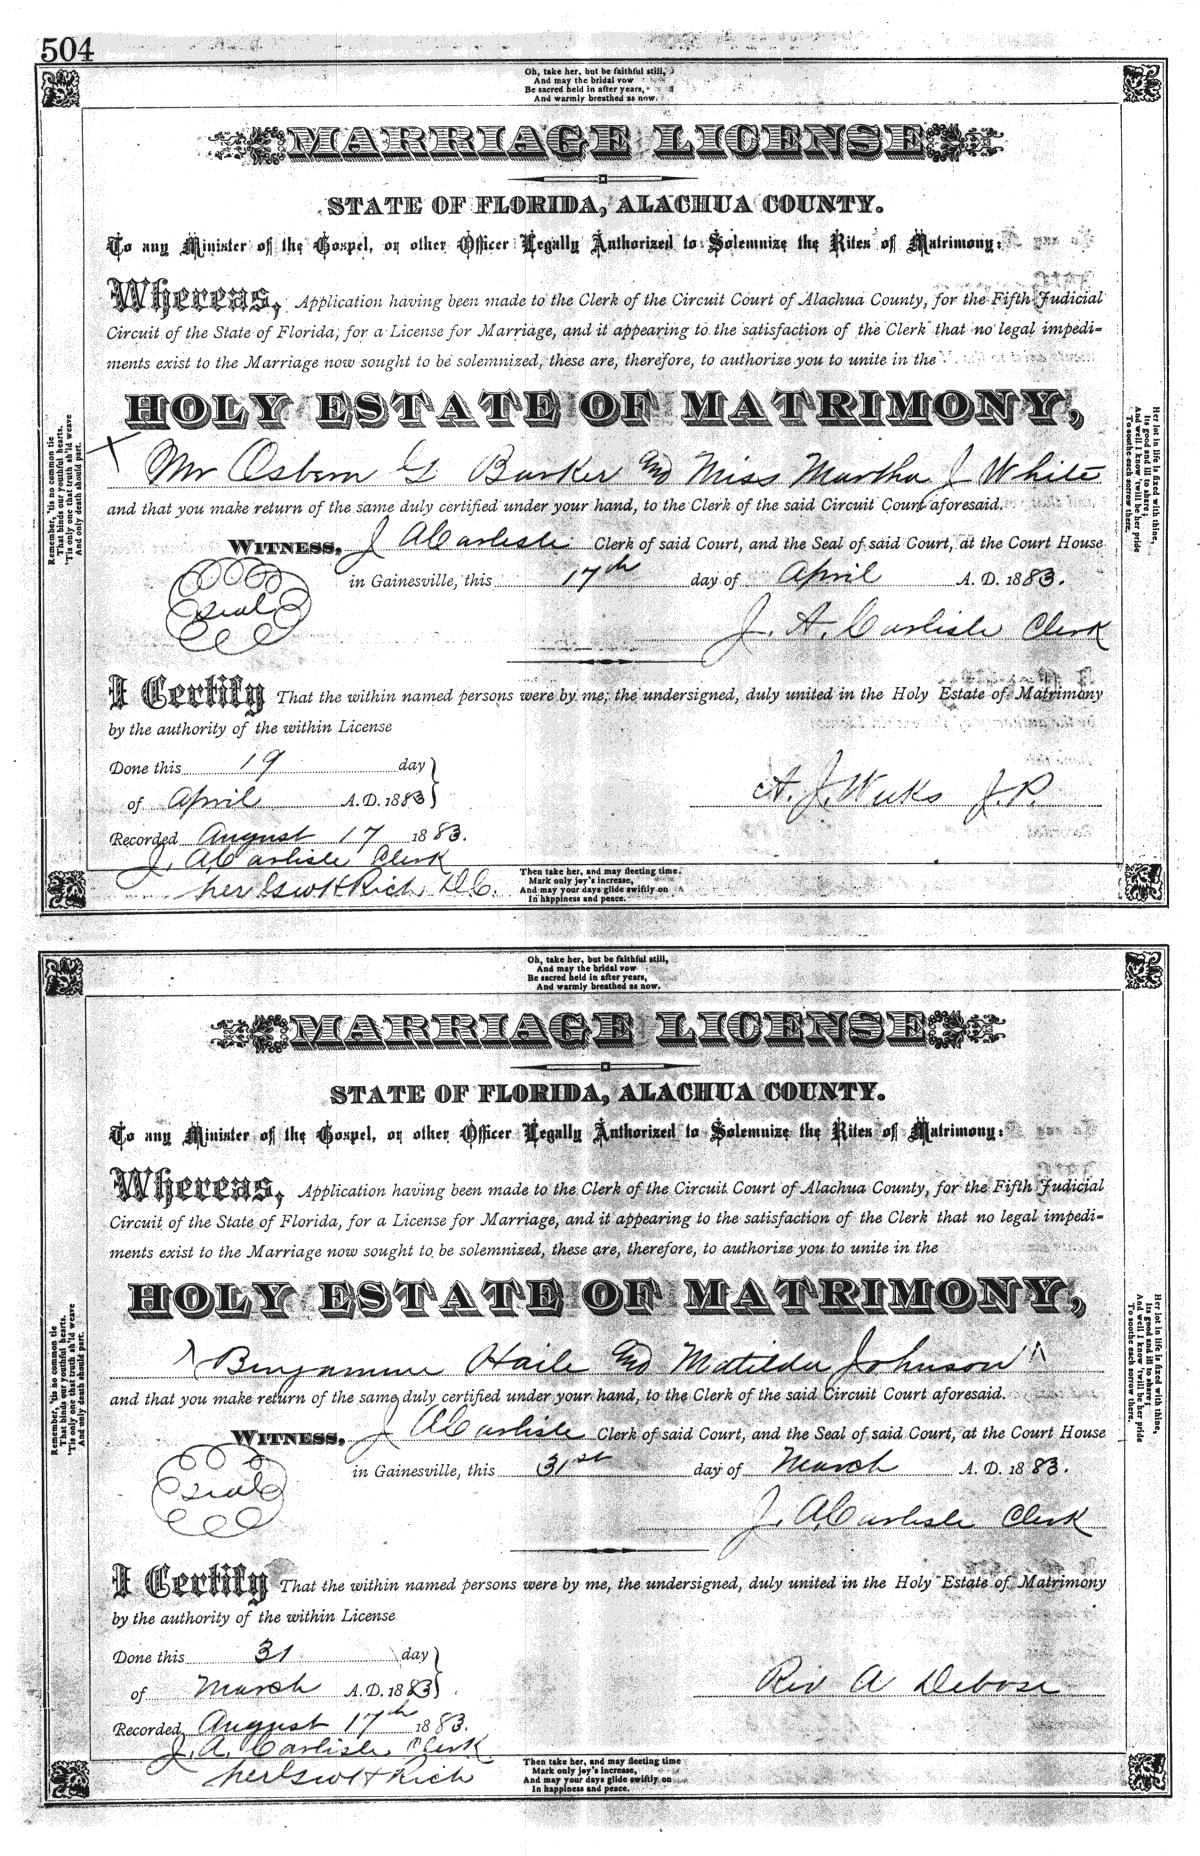 504
Oh, take her, but be faithful still,
And may the bridal vow
Be sacred held in after years,
And warmly breathed as now.
MARRIAGE LICENSE
STATE OF FLORIDA, ALACHUA COUNTY.
To any Minister of the Gospel, or other Officer Legally Authorized to Solemnize the Rites of Matrimony:
Whereas, Application having been made to the Clerk of the Circuit Court of Alachua County, for the Fifth Judicial
Circuit of the State of Florida, for a License for Marriage, and it appearing to the satisfaction of the Clerk that no legal impedi-
ments exist to the Marriage now sought to be solemnized, these are, therefore, to authorize you to unite in the
HOLY ESTATE OF MATRIMONY,
Mr Osbern G Barker and Miss Martha J White
and that you make return of the same duly certified under your hand, to the Clerk of the said Circuit Court aforesaid.
WITNESS, J A Carlisle Clerk of said Court, and the Seal of said Court, at the Court House
Seal
in Gainesville, this 17th day of April A. D. 1883.
J. A. Carlisle Clerk
I Certify That the within named persons were by me, the undersigned, duly united in the Holy Estate of Matrimony
by the authority of the within License
Done this 19 day
of April A.D. 1883
A. J. Weeks J.P.
Recorded August 17 1883.
J. A. Carlisle Clerk
Rich D.C.
Then take her, and may fleeting time
Mark only joy's increase,
And may your days glide swiftly on
In happiness and peace.
Remember, 'tis no common tie
That binds our youthful hearts,
'Tis only one that truth sh'ld weave
And only death should part.
Her lot in life is fixed with thine,
Its good and ill to share;
And well I know 'twill be her pride
To soothe each sorrow there.
Oh, take her, but be faithful still,
And may the bridal vow
Be sacred held in after years,
And warmly breathed as now.
MARRIAGE LICENSE
STATE OF FLORIDA, ALACHUA COUNTY.
To any Minister of the Gospel, or other Officer Legally Authorized to Solemnize the Rites of Matrimony:
Whereas, Application having been made to the Clerk of the Circuit Court of Alachua County, for the Fifth Judicial
Circuit of the State of Florida, for a License for Marriage, and it appearing to the satisfaction of the Clerk that no legal impedi-
ments exist to the Marriage now sought to be solemnized, these are, therefore, to authorize you to unite in the
HOLY ESTATE OF MATRIMONY,
Benjamine Haile and Matilda Johnson
and that you make return of the same duly certified under your hand, to the Clerk of the said Circuit Court aforesaid.
WITNESS, J A Carlisle Clerk of said Court, and the Seal of said Court, at the Court House
Seal
in Gainesville, this 31st day of March A. D. 1883.
J. A. Carlisle Clerk
I Certify That the within named persons were by me, the undersigned, duly united in the Holy Estate of Matrimony
by the authority of the within License
Done this 31 day
of March A.D. 1883
Rev A Debose
Recorded August 17th 1883.
J. A. Carlisle Clerk
Rich
Then take her, and may fleeting time
Mark only joy's increase,
And may your days glide swiftly on
In happiness and peace.
Remember, 'tis no common tie
That binds our youthful hearts.
'Tis only one that truth sh'ld weave
And only death should part.
Her lot in life is fixed with thine,
Its good and ill to share;
And well I know 'twill be her pride
To soothe each sorrow there.